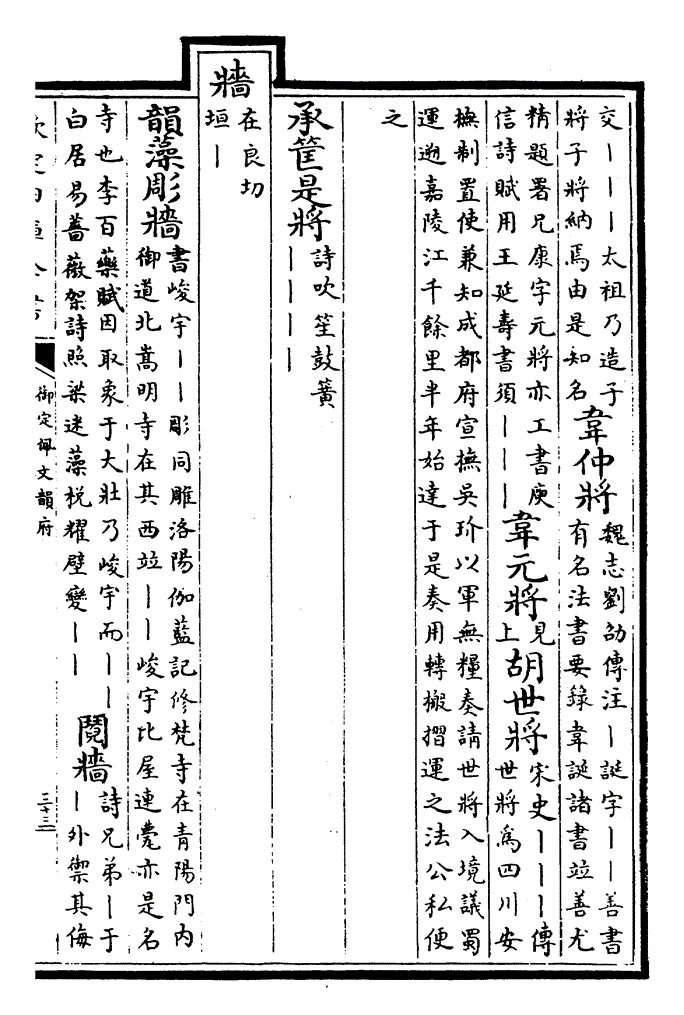 交｜｜｜太祖乃造子
將子將納焉由是知名
韋仲將
魏志劉劭傳注｜誕字｜｜善書
有名法書要錄韋誕諸書竝善尤
精題署兄康字元將亦工書庾
信詩賦用王延壽書須｜｜｜
韋元將
見
上
胡世將
宋史｜｜｜傳
世將爲四川安
撫制置使兼知成都府宣撫吳玠以軍無糧奏請世將入境議蜀
運遡嘉陵江千餘里半年始達于是奏用轉搬摺運之法公私便
之
承筐是將
詩吹笙鼓簧
｜｜｜｜
牆
在良切
垣｜
韻藻彫牆
書峻宇｜｜彫同雕洛陽伽藍記修梵寺在青陽門內
御道北嵩明寺在其西竝｜｜峻宇比屋連甍亦是名
寺也李百藥賦因取象于大壯乃峻宇而｜｜
白居易薔薇架詩照梁迷藻梲耀壁變｜｜
鬩牆
詩兄弟｜于
｜外禦其侮
欽定四庫全書
御定佩文韻府
三十三